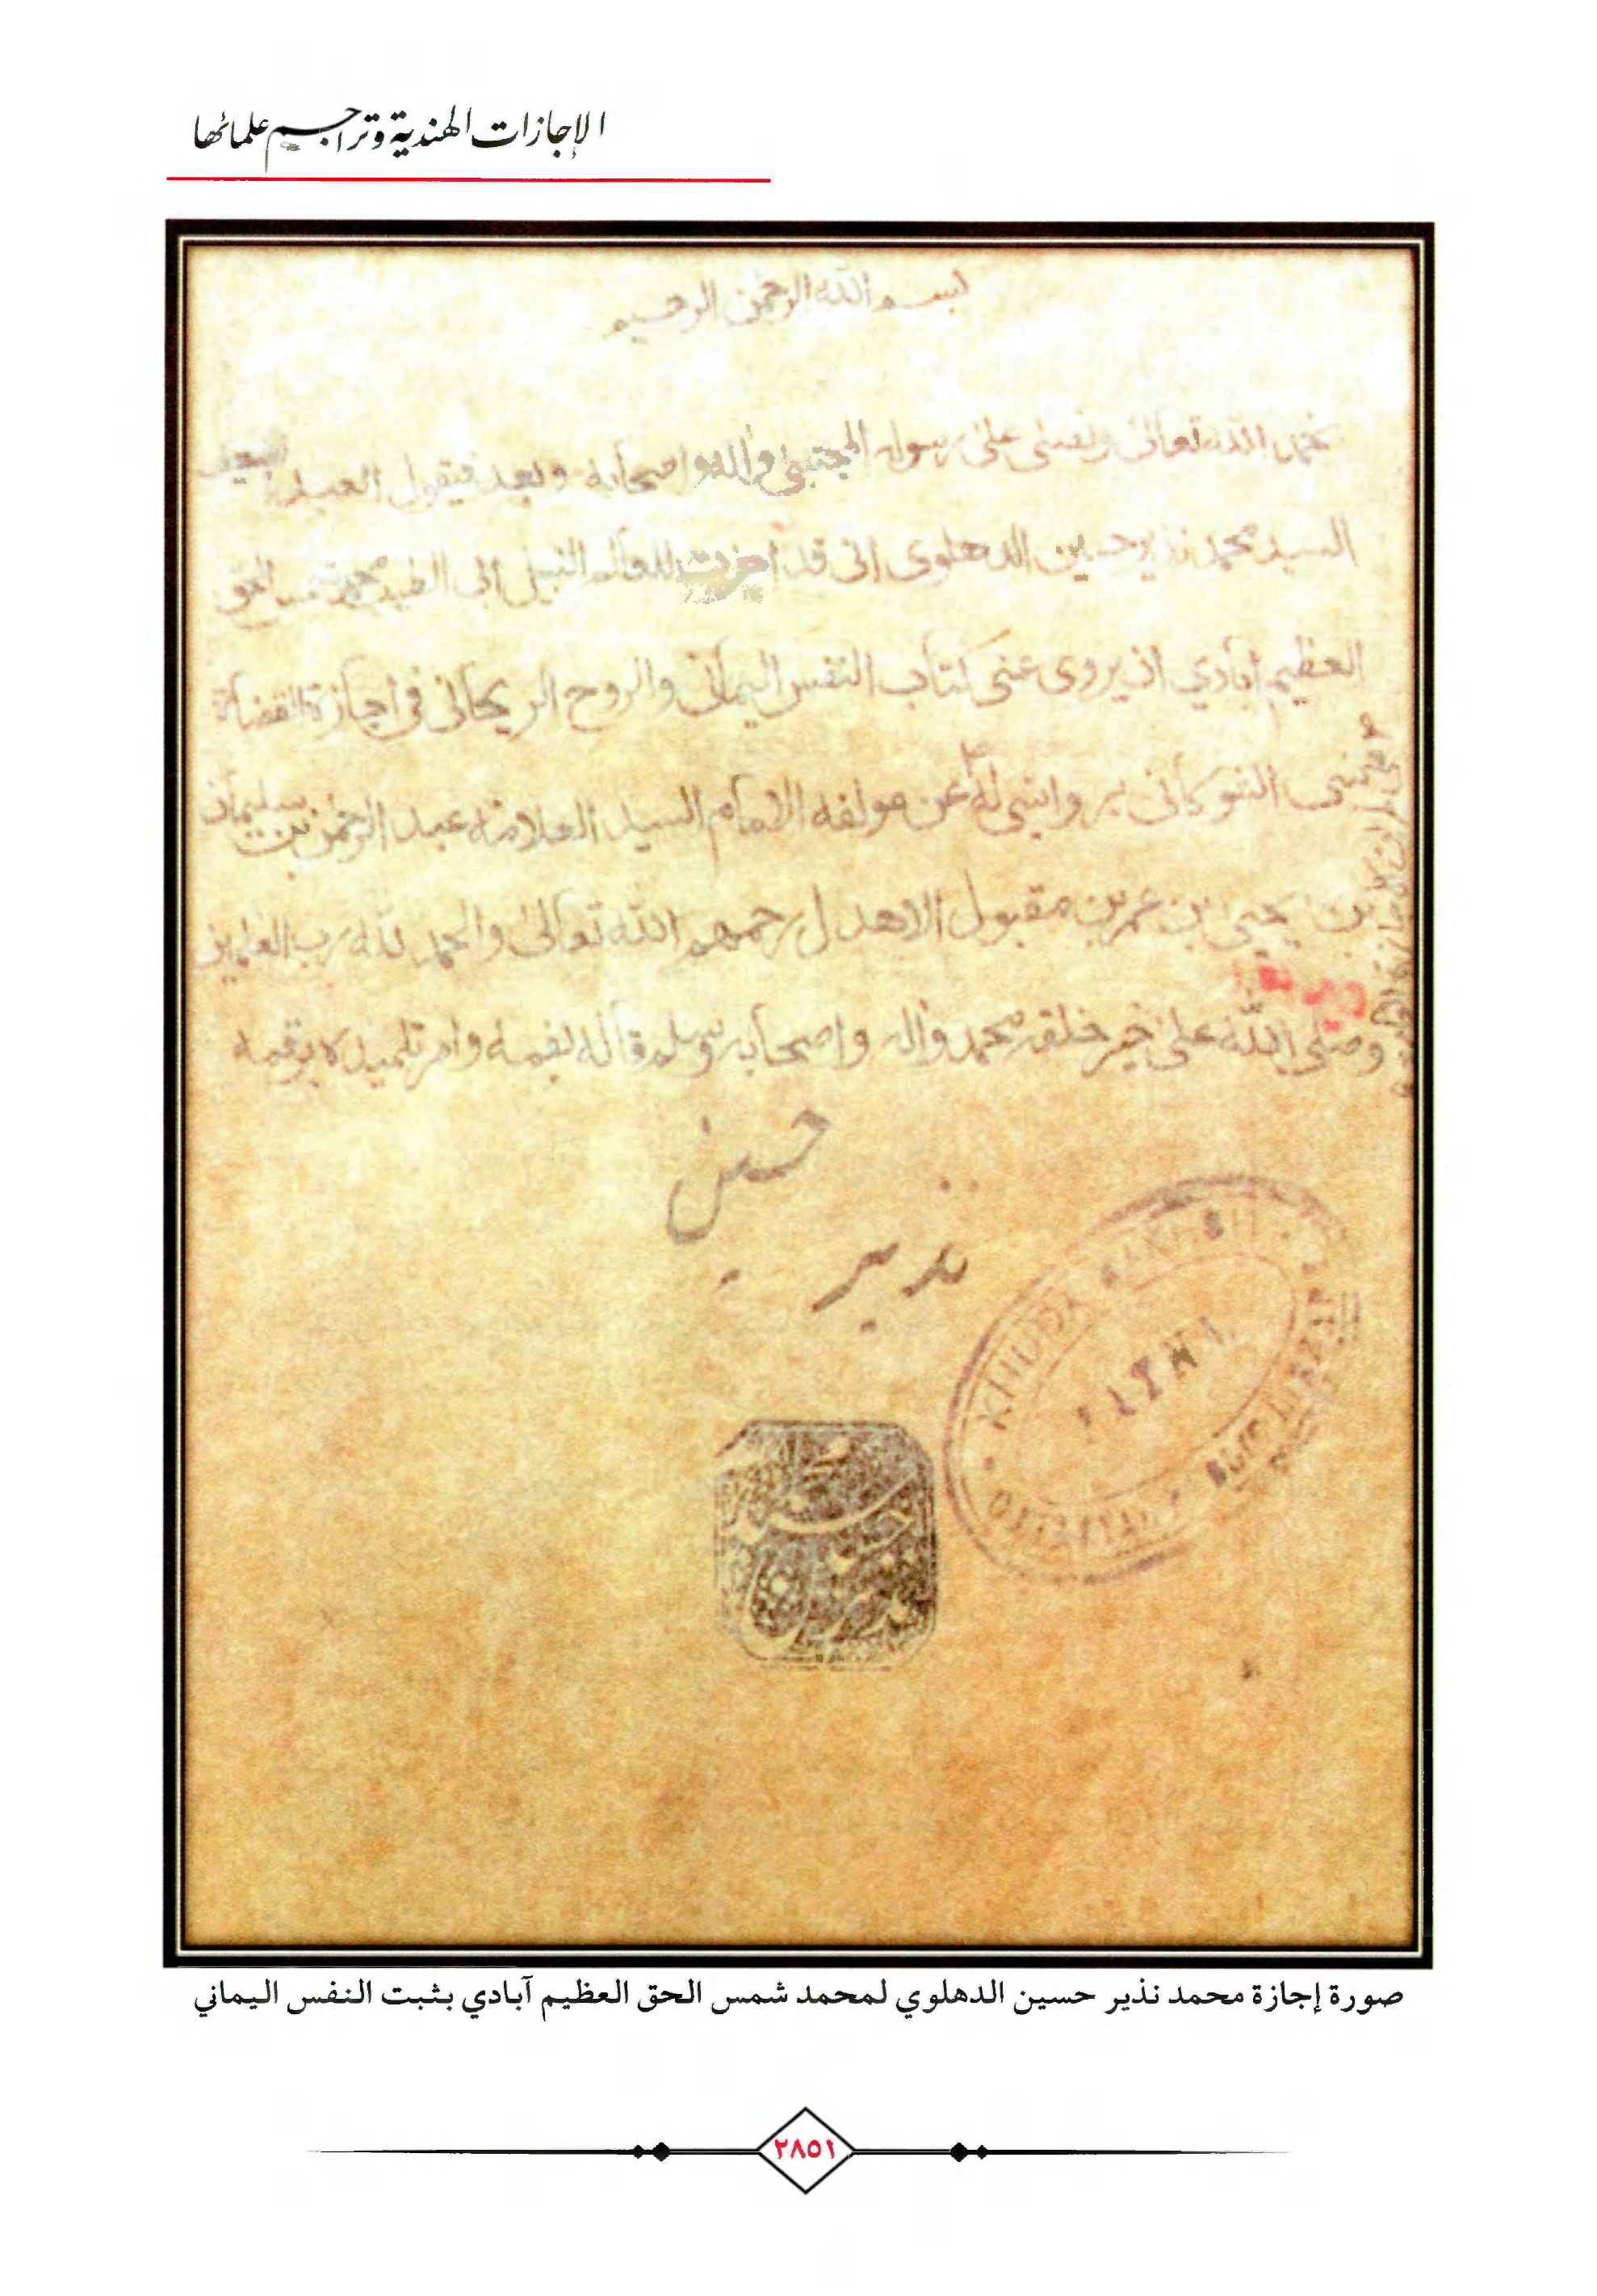 الإجازات الهندية وتراجم علمائها
بسم الله الرحمن الرحيم
نحمد الله تعالى ونصلى على رسوله المجتبى واله واصحابه وبعد فيقول العبد الضعيف
السيد محمد نذير حسين الدهلوى انى قد اجزت للعالم النبيل ابى الطيب محمد شمس الحق
العظيم ابادي ان يروى عنى كتاب النفس اليمانى والروح الريحانى فى اجازة القضاة
بنى الشوكانى بروايتى له عن مولفه الامام السيد العلامة عبد الرحمن بن سليمان
بن يحيى بن عمر بن مقبول الاهدل رحمهم الله تعالى والحمد لله رب العلمين
وصلى الله على خير خلقه محمد واله واصحابه وسلم قاله بفمه وامر تلميذه برقمه
حسين
نذير
KHUDA BAKHSH
PATNA
ORIENTAL PUBLIC LIBRARY
نذير حسين
صورة إجازة محمد نذير حسين الدهلوي لمحمد شمس الحق العظيم آبادي بثبت النفس اليماني
٢٨٥١